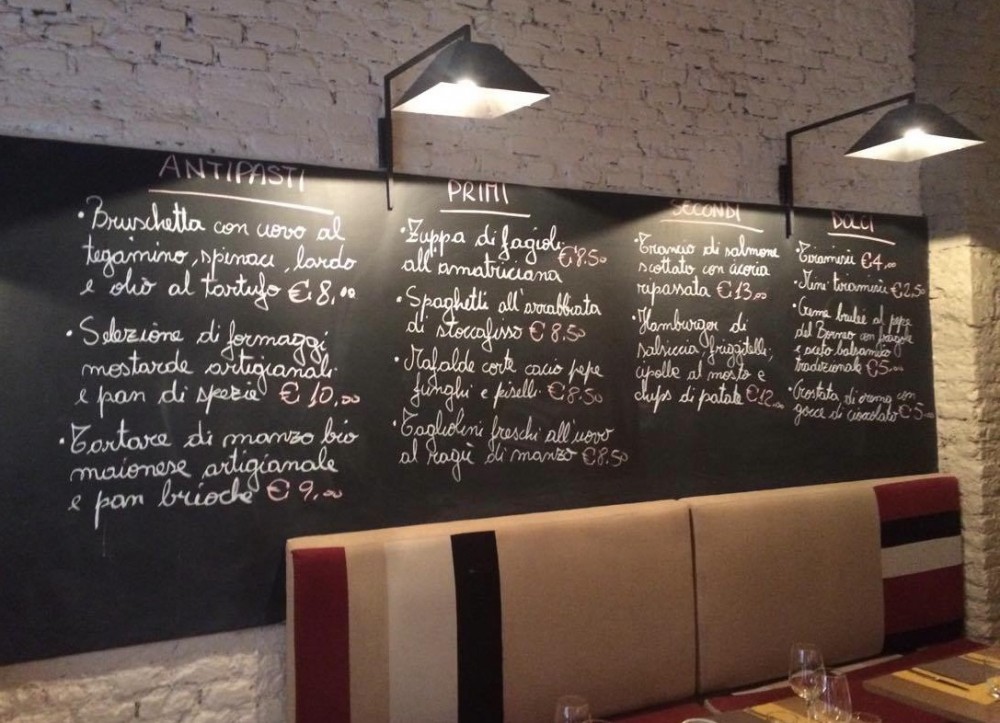 ANTIPASTI
• Bruschetta con uovo al
tegamino, spinaci, lardo
e olio al tartufo € 8,00
• Selezione di formaggi
mostarde artigianali
e pan di spezie € 10,00
• Tartare di manzo bio
maionese artigianale
e pan brioche € 9,00
PRIMI
• Zuppa di fagioli
all'amatriciana €8.50
• Spaghetti all'arrabbiata
di stoccafisso € 8.50
• Mafalde corte cacio pepe
funghi e piselli €8.50
• Tagliolini freschi all'uovo
al ragù di manzo €8,50
SECONDI
• Trancio di salmone
scottato con cicoria
ripassata €13,00
• Hamburger di
salsiccia friggitelli,
cipolle al mosto e
chips di patate €12,00
DOLCI
• Tiramisù €4,00
• Mini tiramisù €2,50
• Creme brulee al pepe
del Borneo con fragole
e aceto balsamico
tradizionale €5,00
• Crostata di crema con
gocce di cioccolato €5,00